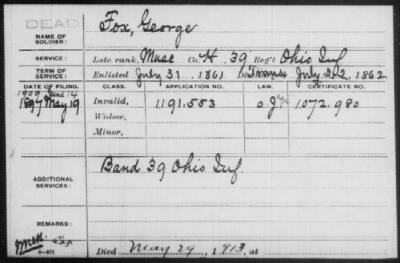 DEAD
NAME OF SOLDIER: Fox, George
SERVICE: Late rank, Musc Co. H. 39 Reg't Ohio Inf
TERM OF SERVICE: Enlisted July 31, 1861 July 22, 1862
DATE OF FILING. CLASS. APPLICATION NO. LAW. CERTIFICATE NO.
1909 June 14
1897 May 19 Invalid, 1191.553 1072.980
Widow,
Minor,
ADDITIONAL SERVICES: Band 39 Ohio Inf.
REMARKS:
Died May 29, 1913, at